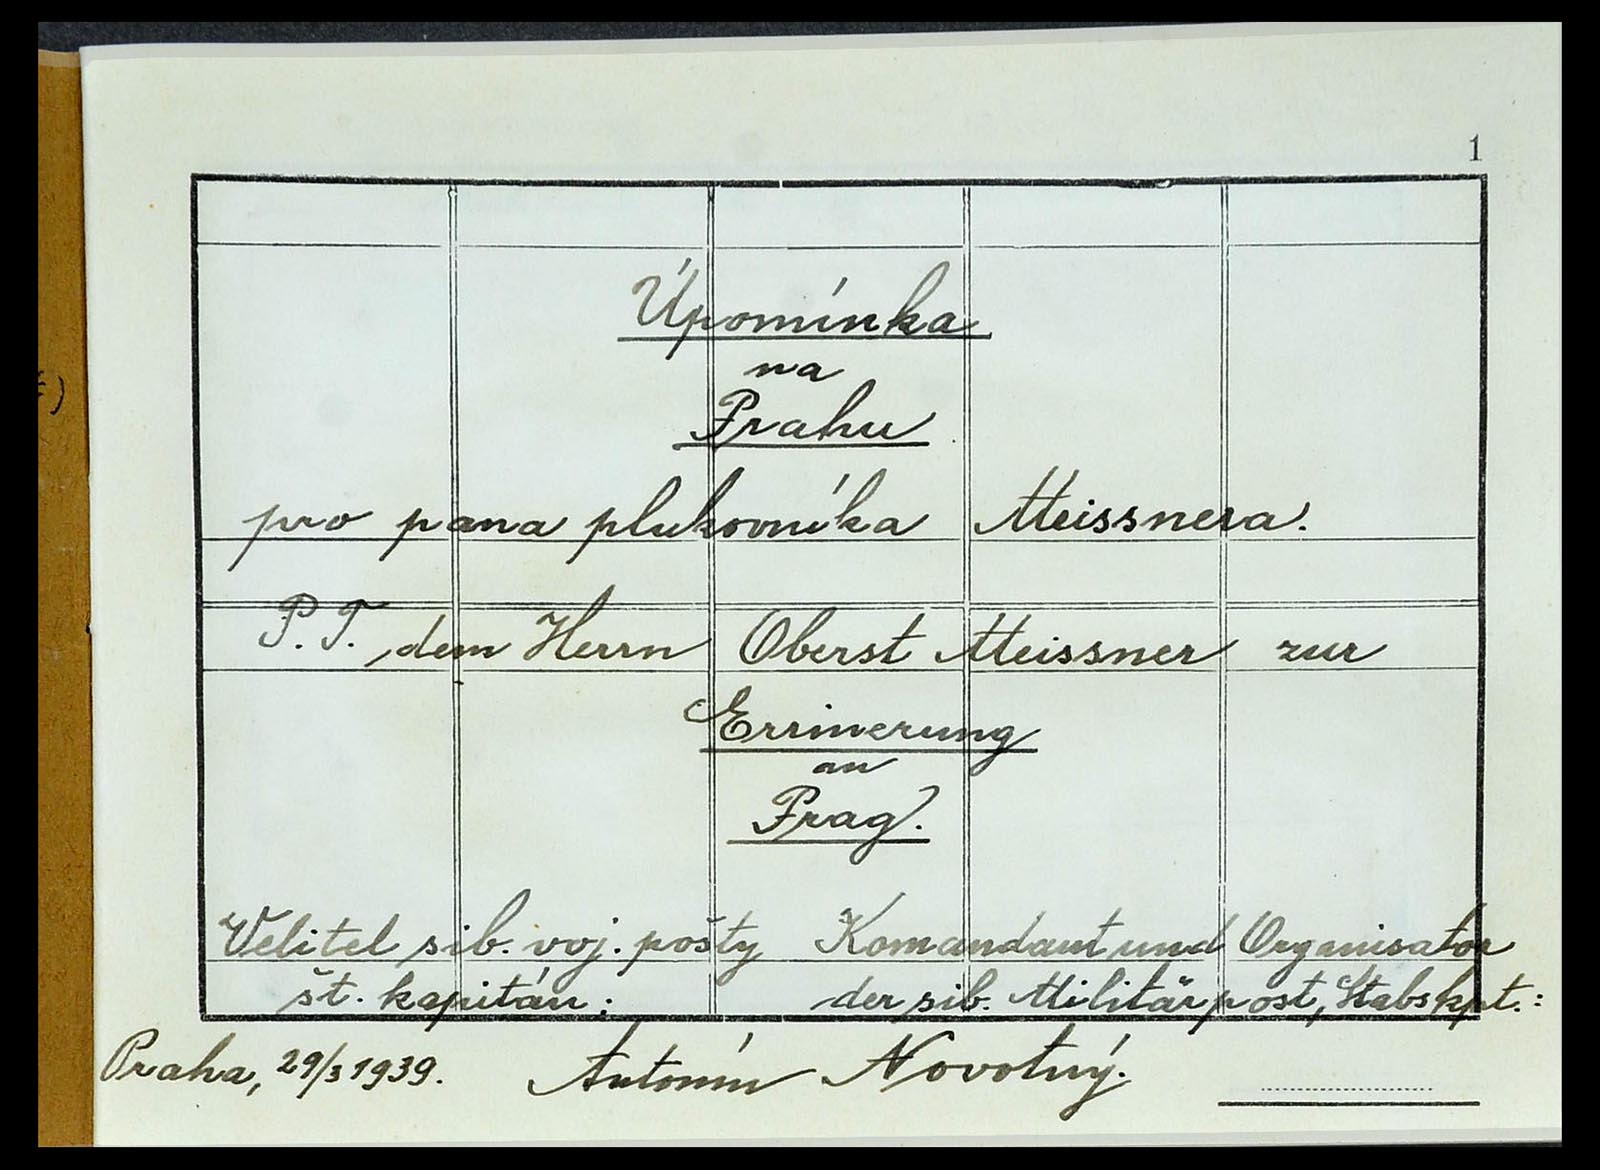 1
Úpomínka
na
Prahu
pro pana plukovníka Meissnera.
P.T. dem Herrn Oberst Meissner zur
Errinerung
an
Prag.
Velitel sib. voj. pošty Komandant und Organisator
št. kapitán: der sib. Militärpost, Stabskpt.:
Praha, 29/3 1939. Antonín Novotný.